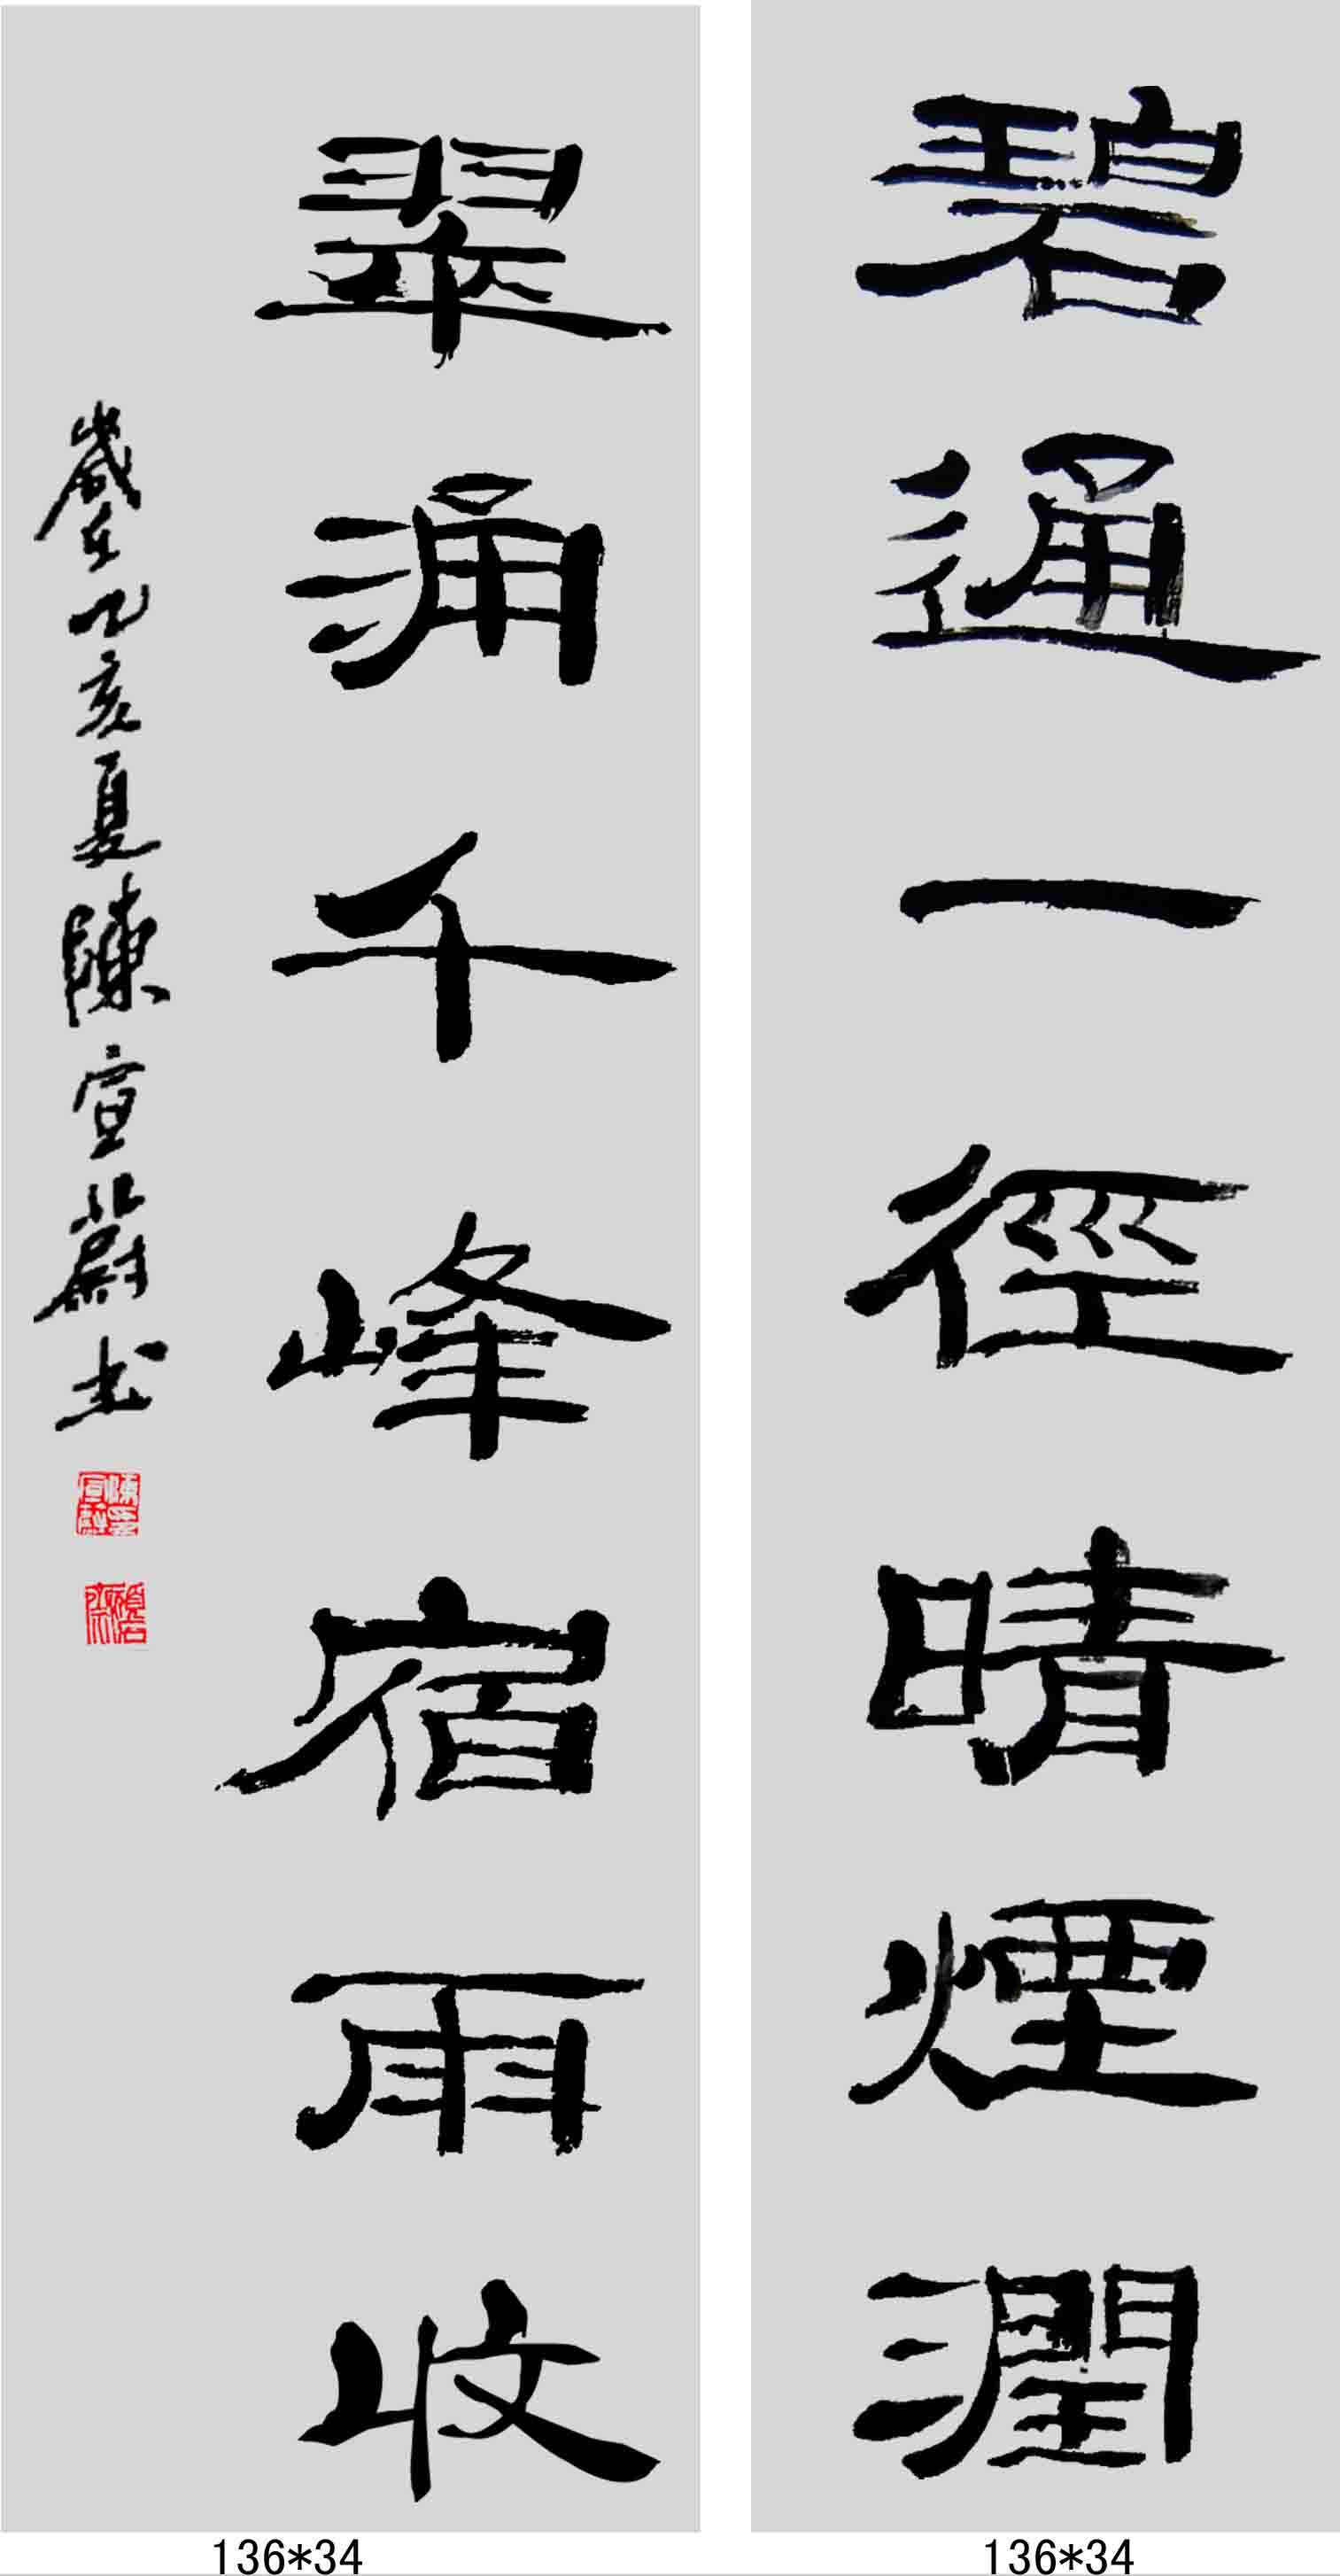 碧通一徑晴煙潤
翠涌千峰宿雨收
歲在乙亥夏陳宣蔚书
136*34
136*34